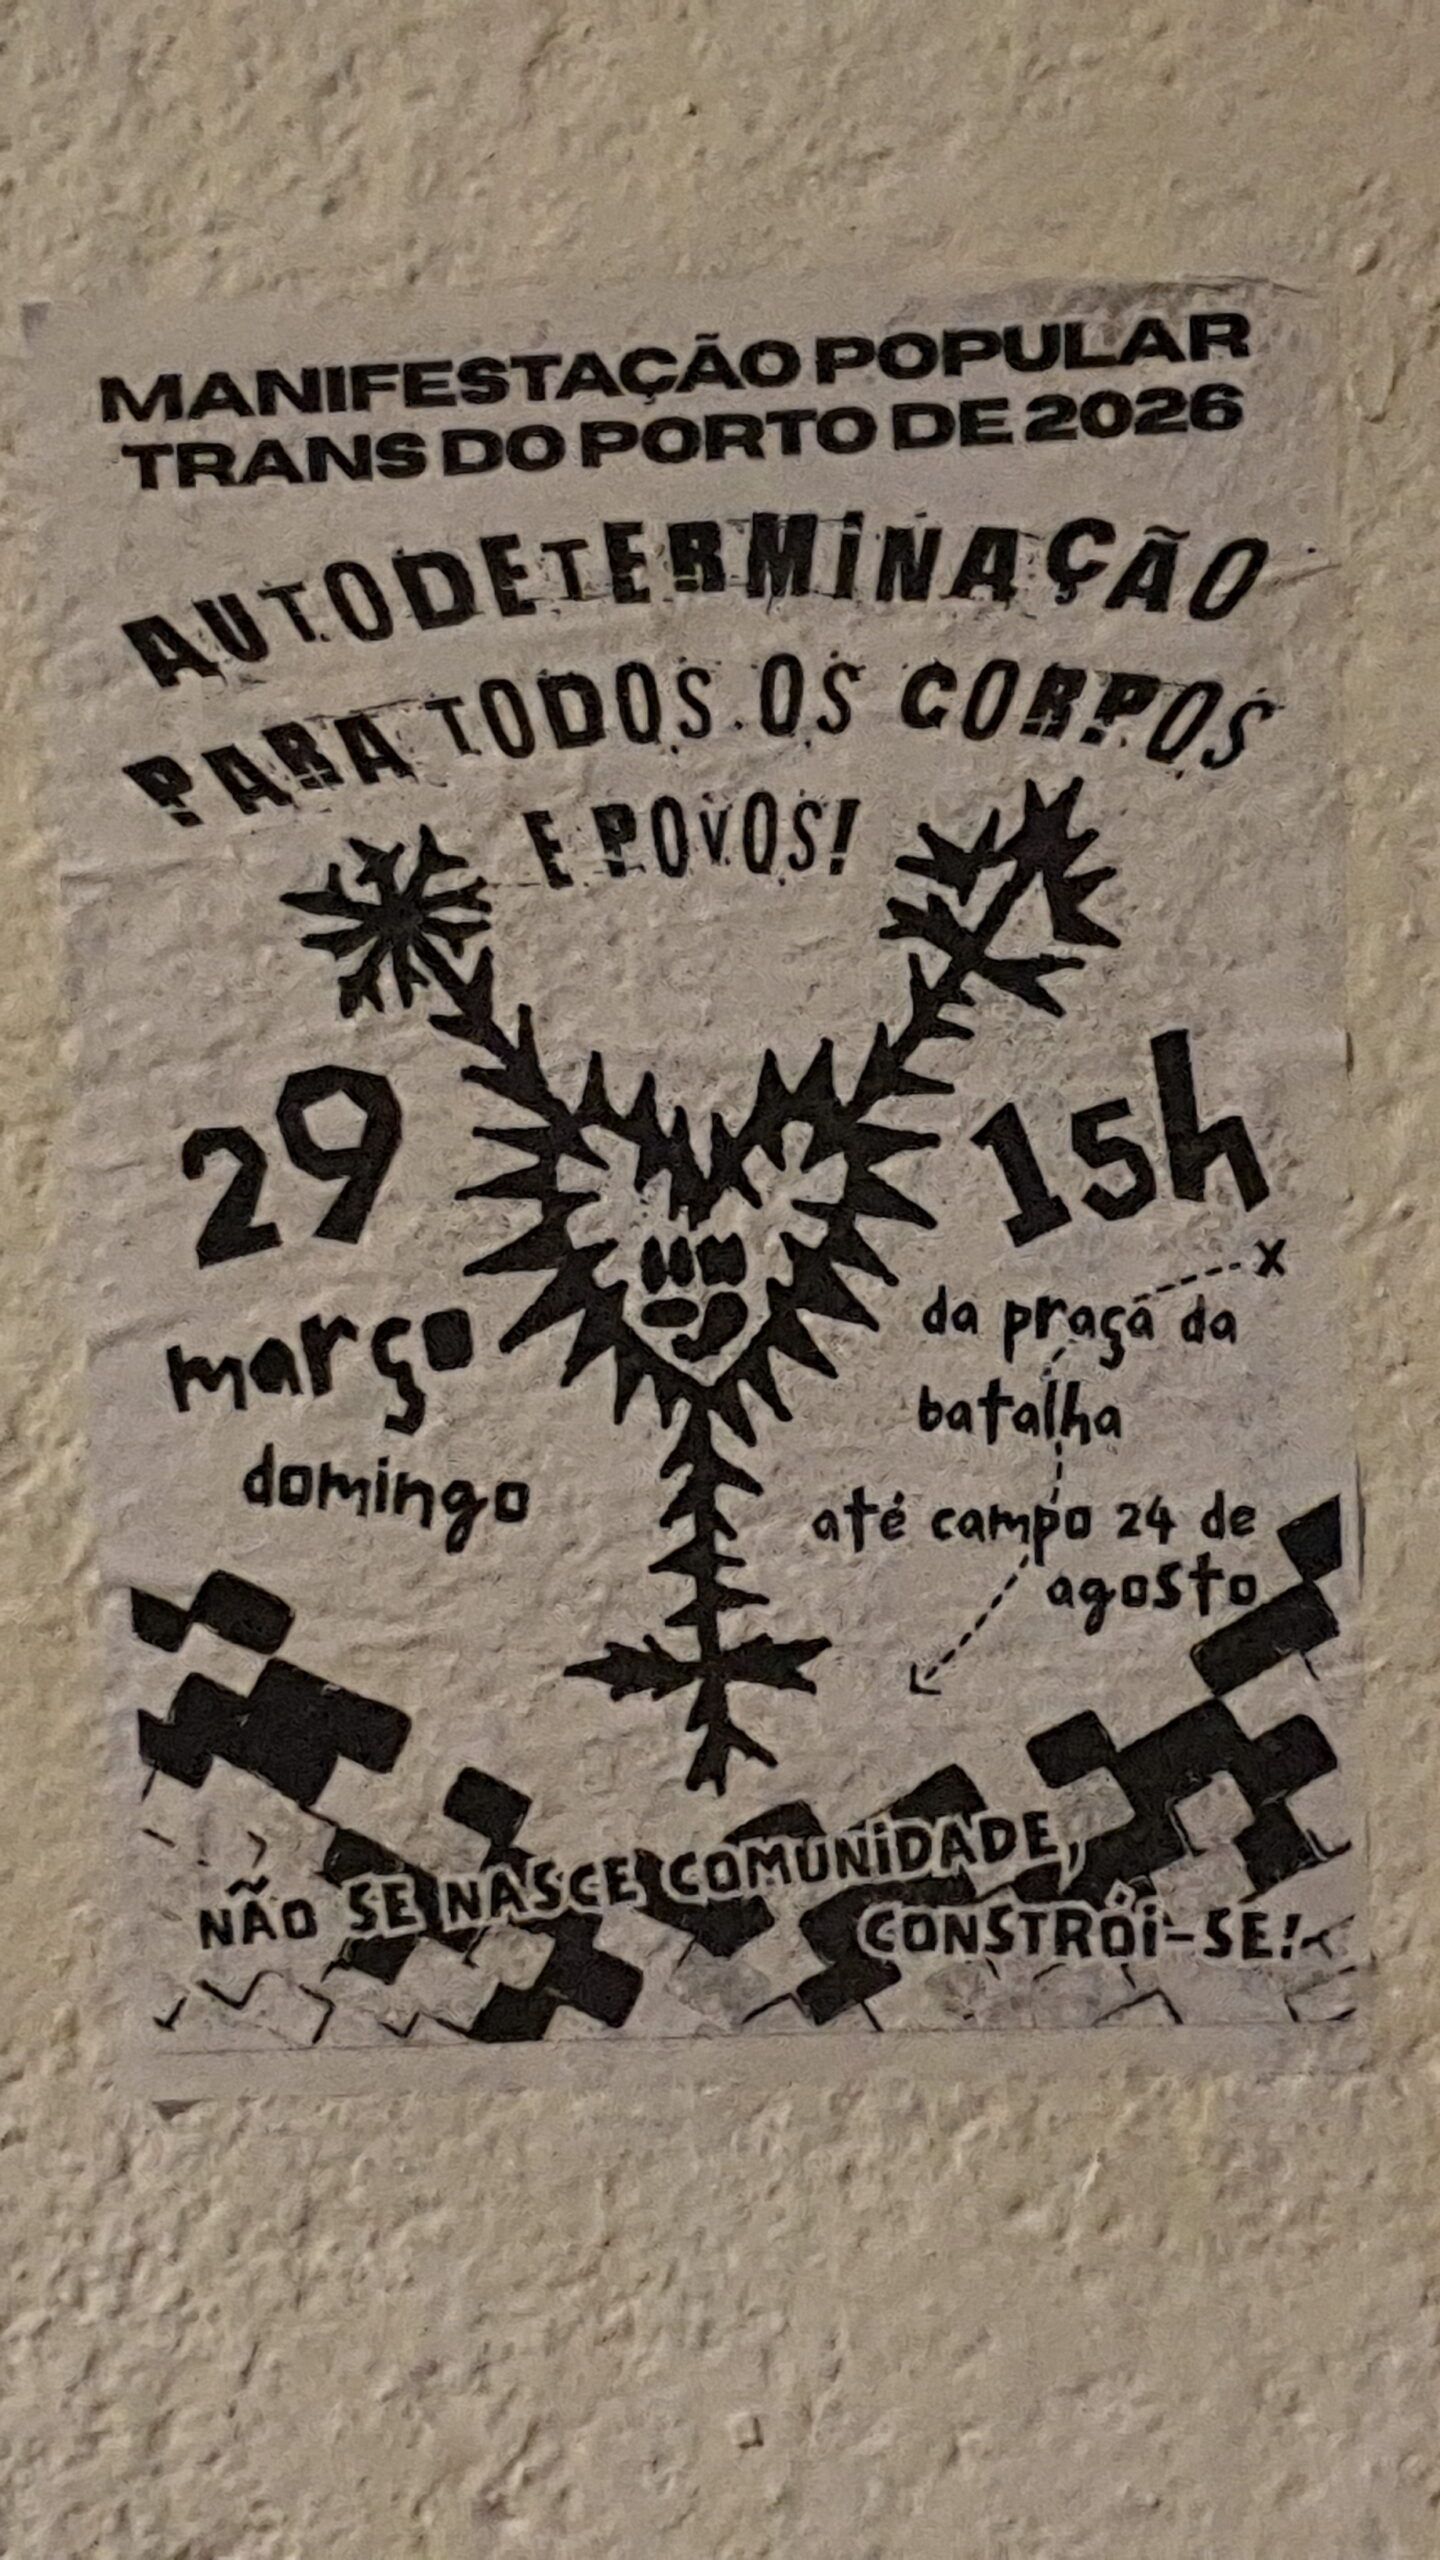 MANIFESTAÇÃO POPULAR
TRANS DO PORTO DE 2026
AUTODETERMiNAÇÃO
PARA TODOS OS CORPOS
E POVOS!
29
março
domingo
15h
x
da praça da
batalha
até campo 24 de
agosto
NÃO SE NASCE COMUNiDADE,
CONSTRÓi-SE!